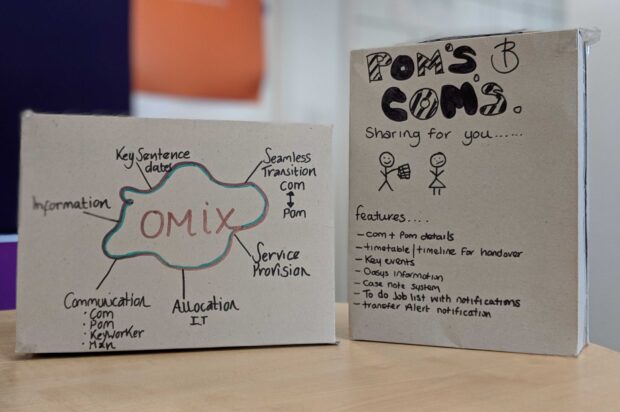 Key Sentence
dates
Seamless
Transition
Com
Pom
Information
OMIX
Service
Provision
Communication
· Com
· Pom
· Keyworker
Allocation
I.T
POM'S.
COM'S.
Sharing for you......
features....
- com + Pom details
- timetable/timeline for handover
- Key events
- Oasys information
- Case note system
- To do Job list with notifications
- transfer Alert notification